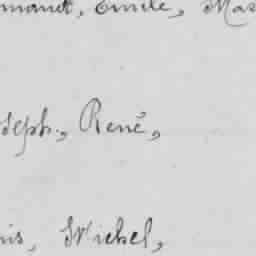 mandt, Emile, Mar
seph, René,
nis, Michel,